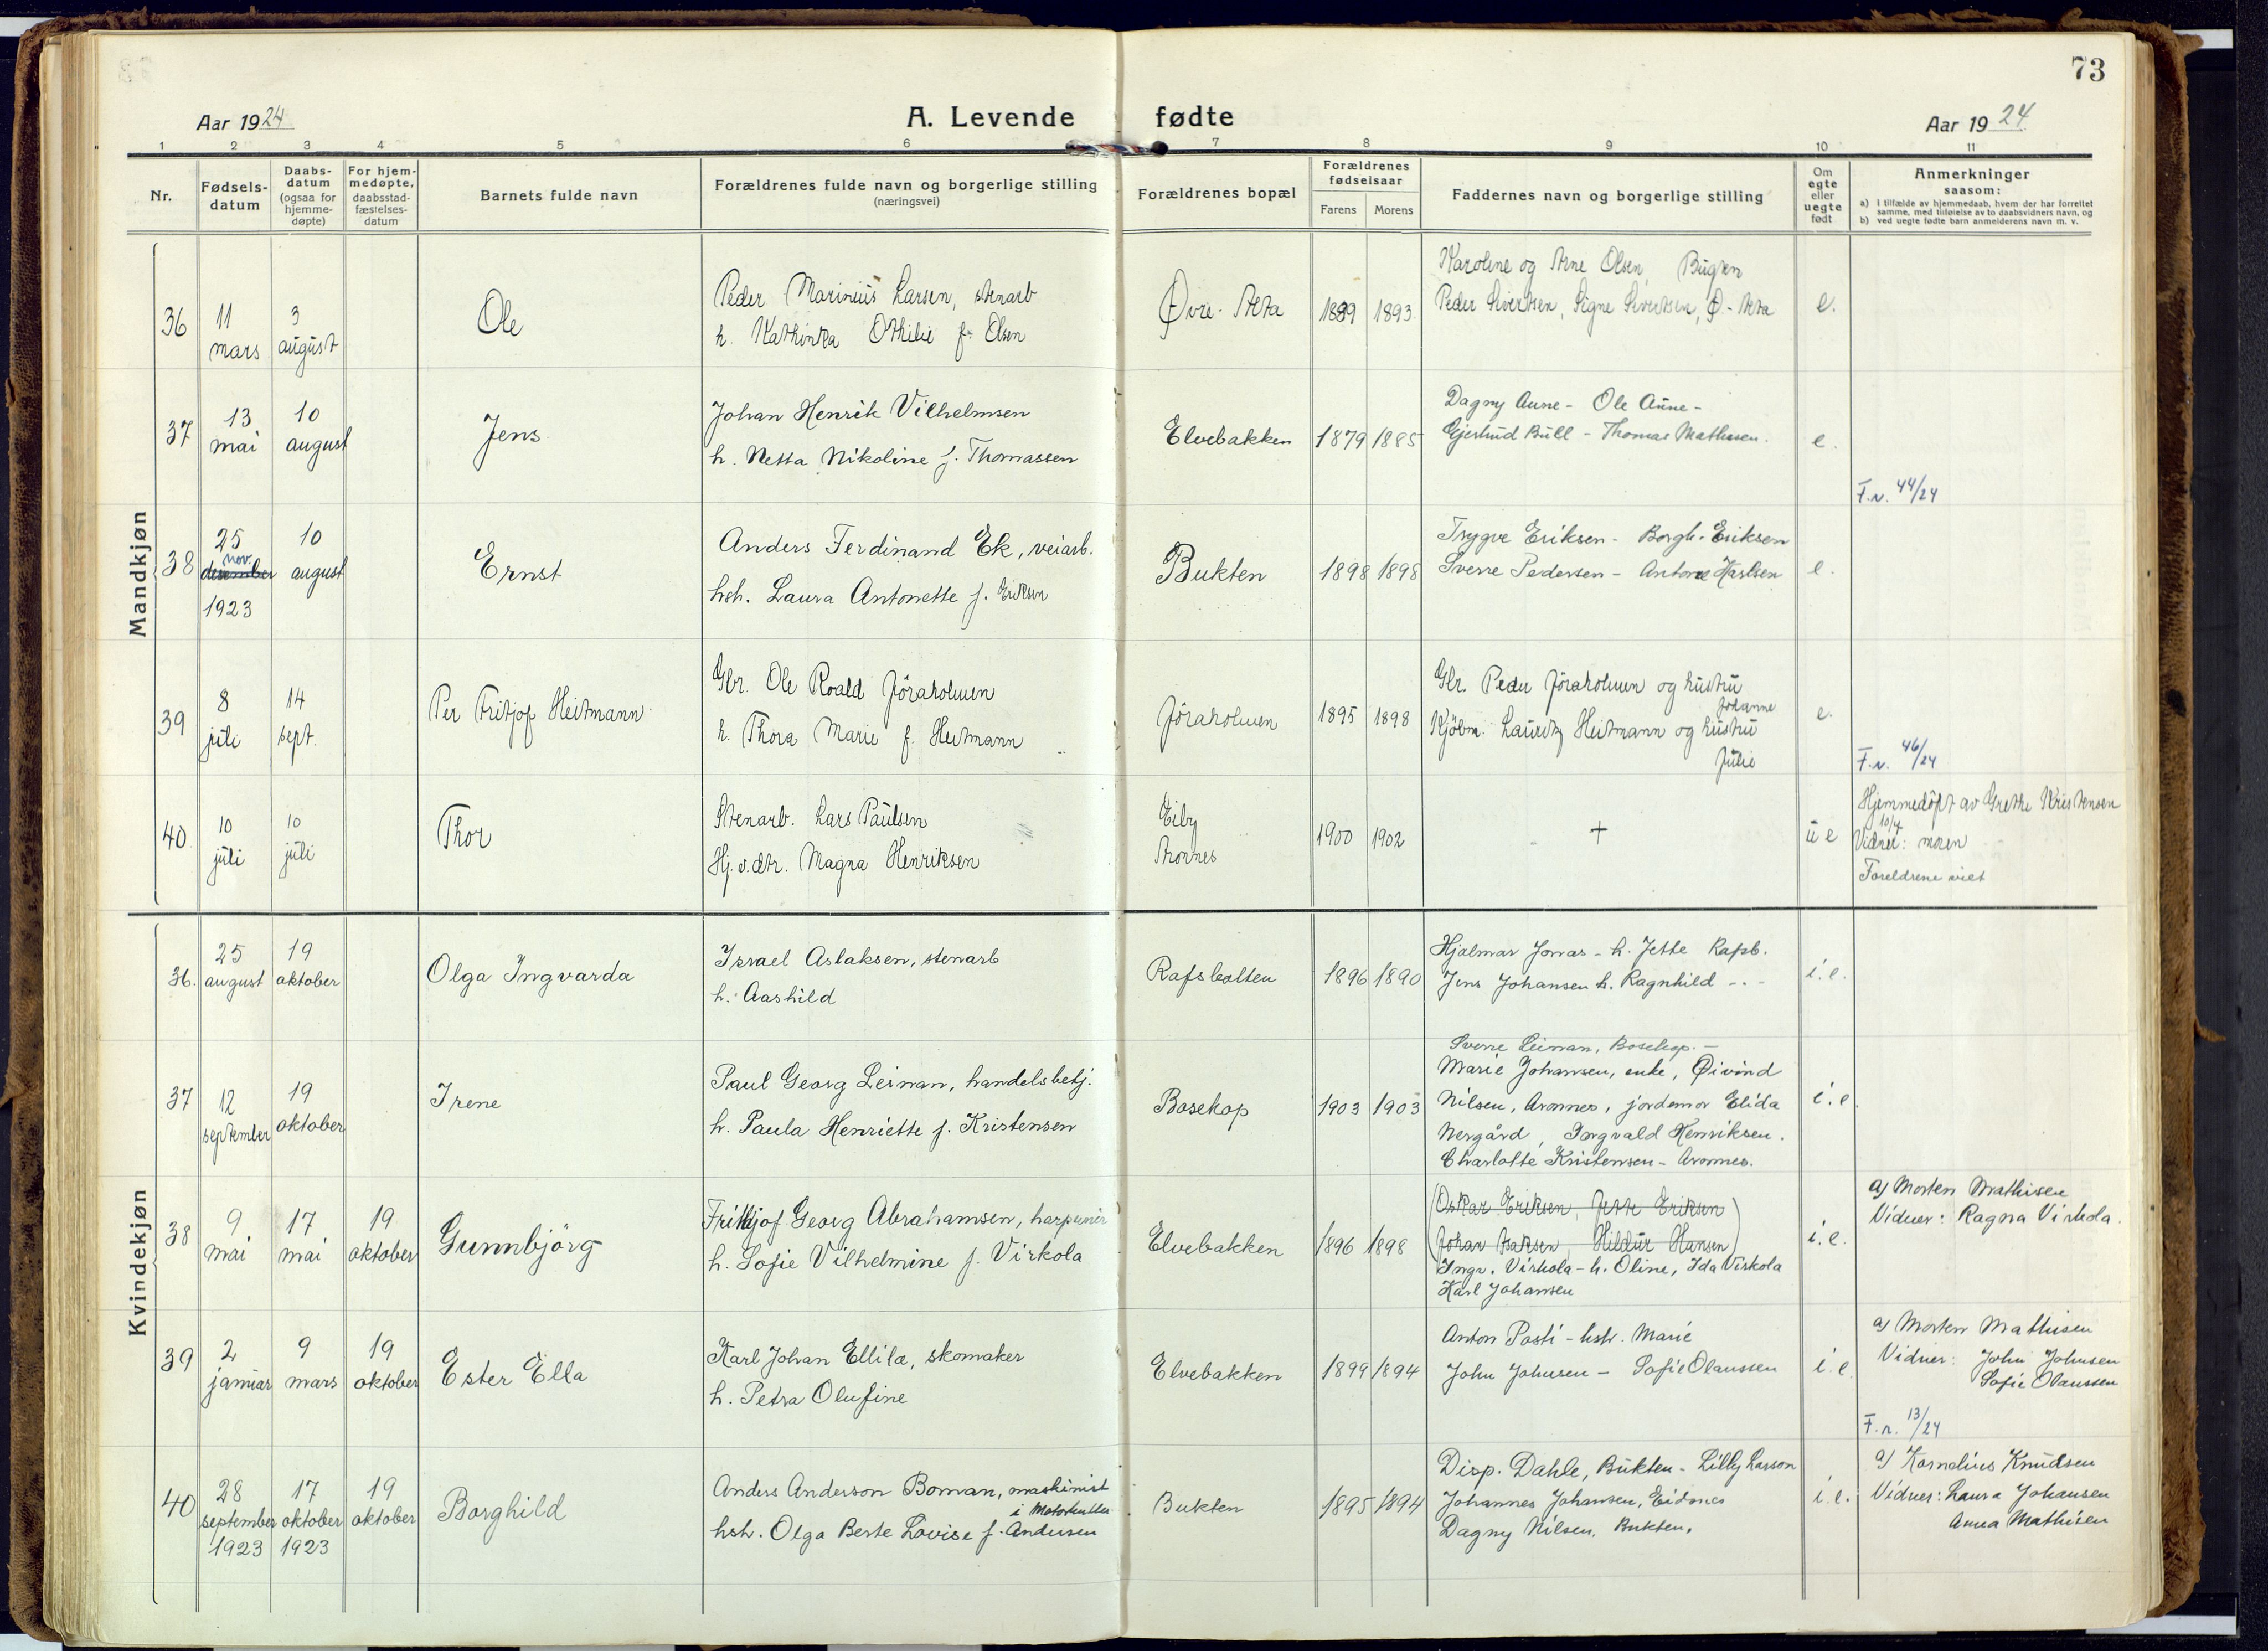 73
Aar 1924
A. Levende fødte
Aar 1924
1 2 3 4 5 6 7 8 9 10 11
Nr.
Fødsels-
datum
Daabs-
datum
(ogsaa for
hjemme-
døpte)
For hjem-
medøpte,
daabsstad-
fæstelses-
datum
Barnets fulde navn
Forældrenes fulde navn og borgerlige stilling
(næringsvei)
Forældrenes bopæl
Forældrenes
fødselsaar
Farens Morens
Faddernes navn og borgerlige stilling
Om
egte
eller
uegte
født
Anmerkninger
saasom:
a) I tilfælde av hjemmedaab, hvem der har forrettet
samme, med tilføielse av to daabsvidners navn, og
b) ved uegte fødte barn anmelderens navn m. v.
Mandkjøn
36
11
mars
3
august
Ole
Peder Marinius Larsen, stenarb
h. Kathinka Othilie f. Olsen
Øvre-Alta
1889 1893
Karoline og Arne Olsen, Bugten
Peder Sivertsen, Signe Sivertsen, Ø-Alta
e.
37
13
mai
10
august
Jens
Johan Henrik Vilhelmsen
h. Netta Nikoline f. Thomassen
Elvebakken
1879 1885
Dagny Aune - Ole Aune -
Gjertrud Bull - Thomas Mathisen.
e.
F.n. 44/24
38
25
nov.
desember
1923
10
august
Ernst
Anders Ferdinand Ek, veiarb.
hsh. Laura Antonette f. Eriksen
Bukten
1898 1898
Trygve Eriksen - Borgh. Eriksen
Sverre Pedersen - Antone Karlsen
e.
39
8
juli
14
sept.
Per Fritjof Heitmann
Gbr. Ole Roald Jöraholmen
h. Thora Marie f. Heitmann
Jöraholmen
1895 1898
Gbr. Peder Jöraholmen og hustru
Johanne
Kjöbm. Lauritz Heitmann og hustru
Julie
e.
F.n. 46/24
40
10
juli
10
juli
Thor
Stenarb. Lars Paulsen
Hj.v.dtr. Magna Henriksen
Eiby
Aronnes
1900 1902
+
u e
Hjemmedöpt av Grethe Kristensen
10/7
Vidner: moren
Foreldrene viet
Kvindekjøn
36.
25
august
19
oktober
Olga Ingvarda
Israel Aslaksen, stenarb
h. Aashild
Rafsbotten
1896 1890
Hjalmar Jonas - h. Jette Rafsb.
Jens Johansen h. Ragnhild - . -
i.e.
37
12
september
19
oktober
Irene
Paul Georg Leinan, handelsbetj.
h. Paula Henriette f. Kristensen
Bosekop
1903 1903
Sverre Leinan, Bosekop. -
Marie Johansen, enke, Øivind
Nilsen, Aronnes, jordemor Elida
Nergård, Ingvald Henriksen.
Charlotte Kristensen - Aronnes.
i.e.
38
9
mai
17
mai
19
oktober
Gunnbjörg
Frithjof Georg Abrahamsen, harpuner
h. Sofie Vilhelmine f. Virkola
Elvebakken
1896 1898
(Oskar Eriksen, Jette Eriksen)
(Johan Isaksen, Hildur Hansen)
Ingv. Virkola - h. Oline, Ida Virkola
Karl Johansen
i.e.
a) Morten Mathisen
Vidner: Ragna Virkola.
39
2
januar
9
mars
19
oktober
Ester Ella
Karl Johan Ellila, skomaker
h. Petra Olufine
Elvebakken
1899 1894
Anton Posti - hstr. Marie
John Johnsen - Sofie Olaussen
i.e.
a) Morten Mathisen
Vidner: John Johnsen
Sofie Olaussen
F.n. 13/24
40
28
september
1923
17
oktober
1923
19
oktober
Borghild
Anders Anderson Boman, maskinist
i Motorkutter
hsh. Olga Berte Lovise f. Andersen
Bukten
1895 1894
Disp. Dahle, Bukten - Lilly Larsson
Johannes Johansen, Eidsnes
Dagny Nilsen, Bukten.
i.e.
a) Kornelius Knudsen
Vidner: Laura Johansen
Anna Mathisen